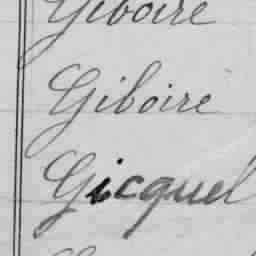 Giboire
Giboire
Gicquel